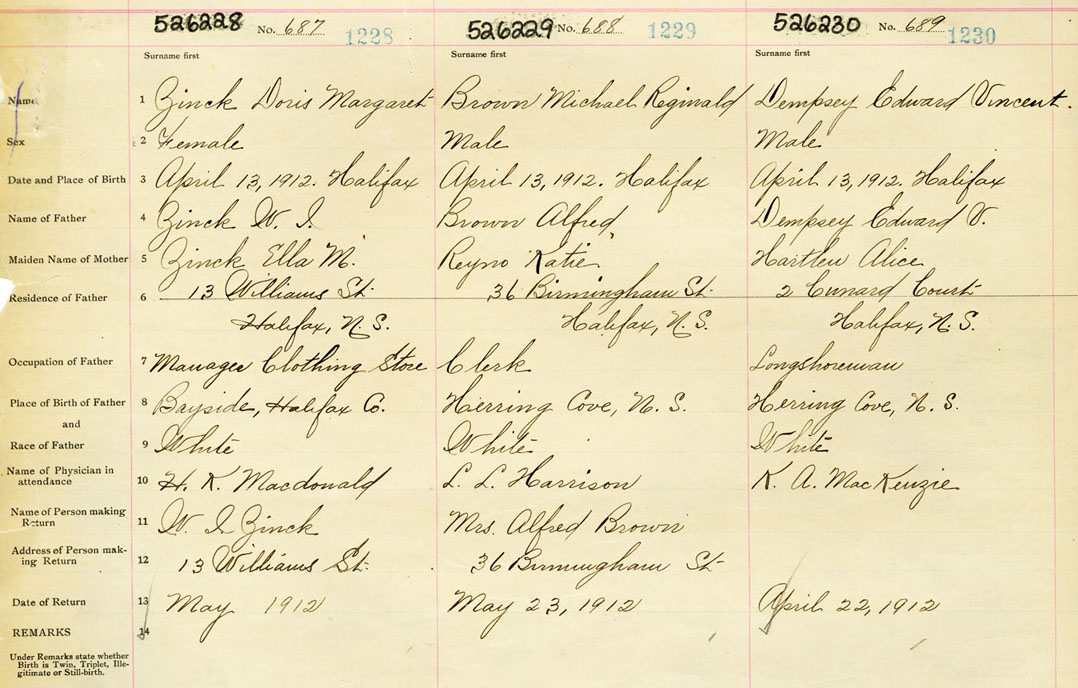 526228 No. 687 1228 526229 No. 688 1229 526230 No. 689 1230
Surname first Surname first Surname first
Name 1 Zinck Doris Margaret Brown Michael Reginald Dempsey Edward Vincent.
Sex 2 Female Male Male
Date and Place of Birth 3 April 13, 1912. Halifax April 13, 1912. Halifax April 13, 1912. Halifax
Name of Father 4 Zinck W. I. Brown Alfred, Dempsey Edward V.
Maiden Name of Mother 5 Zinck Ella M. Reyno Katie Hartlen Alice
Residence of Father 6 13 Williams St. 36 Birmingham St. 2 Cunard Court
Halifax, N.S. Halifax, N.S. Halifax, N.S.
Occupation of Father 7 Manager Clothing Store Clerk Longshoreman
Place of Birth of Father 8 Bayside, Halifax Co. Herring Cove, N.S. Herring Cove, N.S.
and
Race of Father 9 White White White
Name of Physician in
attendance 10 H. K. Macdonald L. L. Harrison K. A. MacKenzie
Name of Person making
Return 11 W. I Zinck Mrs. Alfred Brown
Address of Person mak-
ing Return 12 13 Williams St. 36 Birmingham St.
Date of Return 13 May 1912 May 23, 1912 April 22, 1912
REMARKS 14
Under Remarks state whether
Birth is Twin, Triplet, Ille-
gitimate or Still-birth.